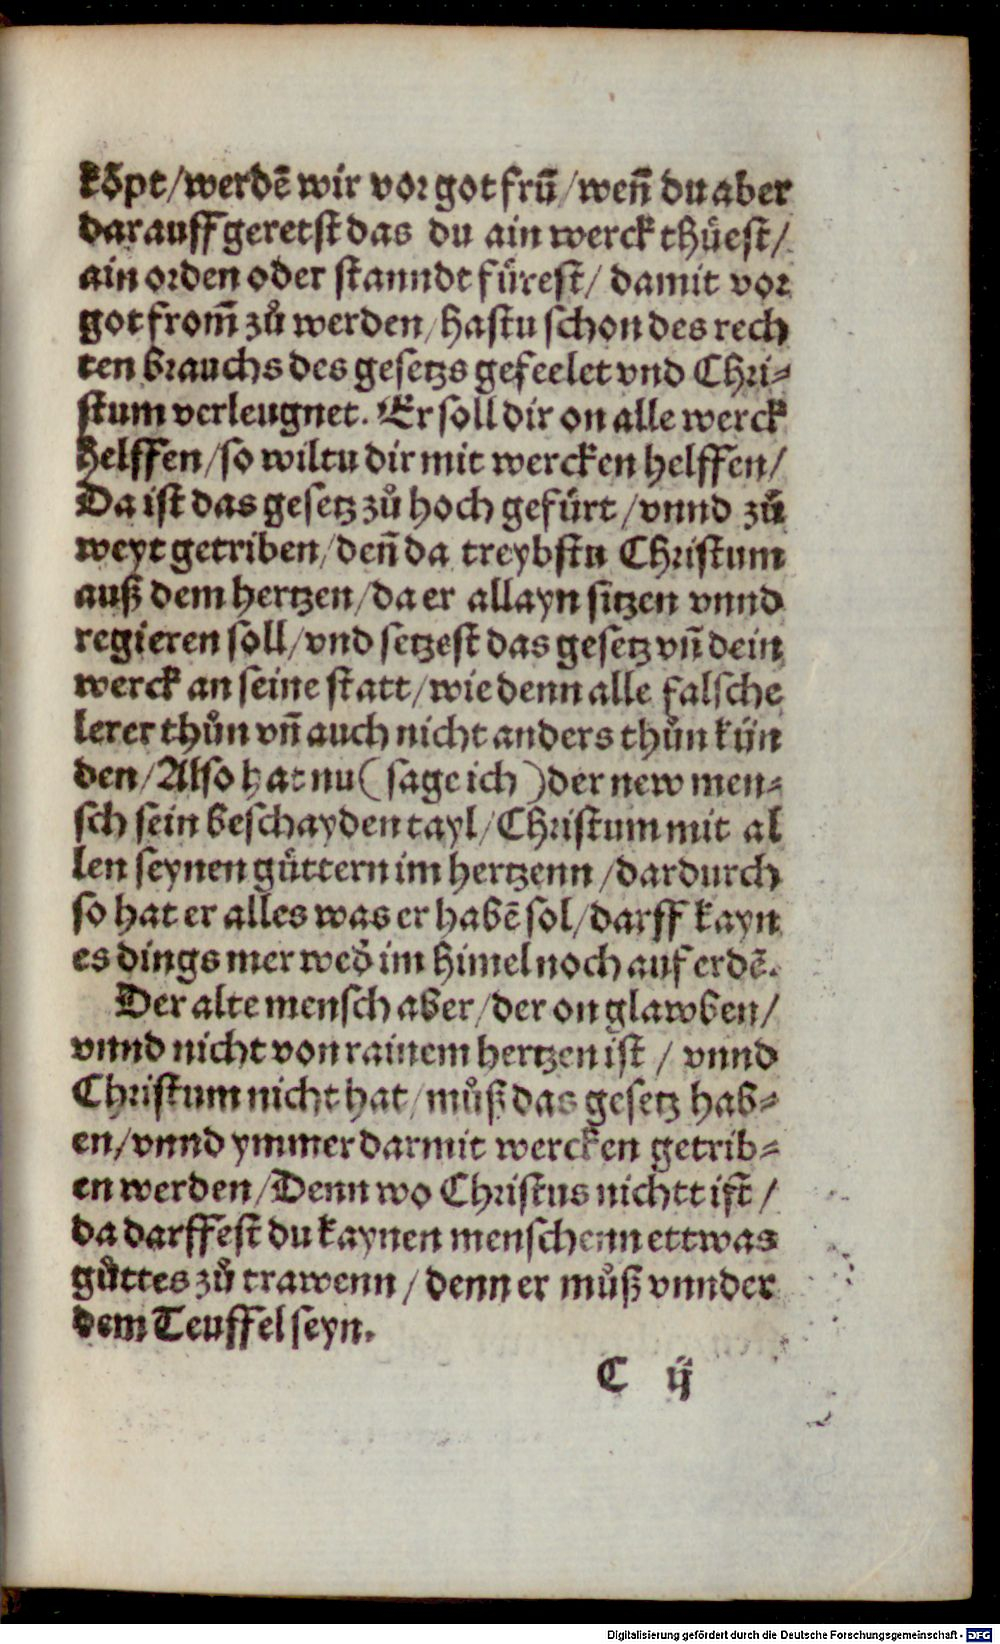 köpt/werdē wir vor got frū/weñ du aber
darauff geretst das du ain werck thüest/
ain orden oder stanndt fürest/ damit vor
got from̃ zů werden/hastu schon des rech
ten brauchs des gesetzs gefeelet vnd Chri⸗
stum verleugnet. Er soll dir on alle werck
helffen/so wiltu dir mit wercken helffen/
Da ist das gesetz zů hoch gefürt/vnnd zů
weyt getriben/deñ da treybstu Christum
auß dem hertzen/da er allayn sitzen vnnd
regieren soll/vnd setzest das gesetz vñ dein
werck an seine statt/wie denn alle falsche
lerer thůn vñ auch nicht anders thůn kün
den/Also hat nu (sage ich) der new men⸗
sch sein beschayden tayl/Christum mit al
len seynen güttern im hertzenn/dardurch
so hat er alles was er habē sol/darff kayn
es dings mer wed̕ im himel noch auf erdē.
Der alte mensch aber/der on glawben/
vnnd nicht von rainem hertzen ist / vnnd
Christum nicht hat/můß das gesetz hab⸗
en/vnnd ymmerdar mit wercken getrib⸗
en werden/Denn wo Christus nichtt ist/
da darffest du kaynen menschenn ettwas
gůttes zů trawenn/denn er můß vnnder
dem Teuffel seyn.
C ij
Digitalisierung gefördert durch die Deutsche Forschungsgemeinschaft - DFG